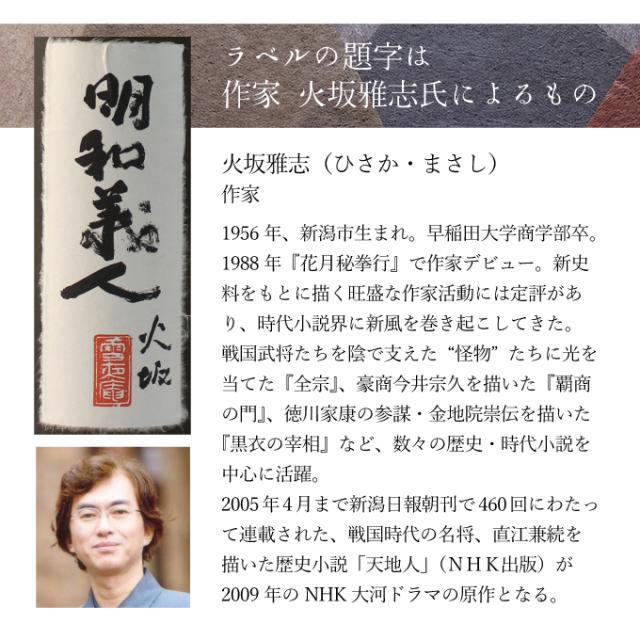 ラベルの題字は
作家 火坂雅志氏によるもの
明和義人
火坂
火坂雅志（ひさか・まさし）
作家
1956 年、新潟市生まれ。早稲田大学商学部卒。
1988 年『花月秘拳行』で作家デビュー。新史
料をもとに描く旺盛な作家活動には定評があ
り、時代小説界に新風を巻き起こしてきた。
戦国武将たちを陰で支えた“怪物”たちに光を
当てた『全宗』、豪商今井宗久を描いた『覇商
の門』、徳川家康の参謀・金地院崇伝を描いた
『黒衣の宰相』など、数々の歴史・時代小説を
中心に活躍。
2005 年 4 月まで新潟日報朝刊で 460 回にわたっ
て連載された、戦国時代の名将、直江兼続を
描いた歴史小説「天地人」（ＮＨＫ出版）が
2009 年の NHK 大河ドラマの原作となる。